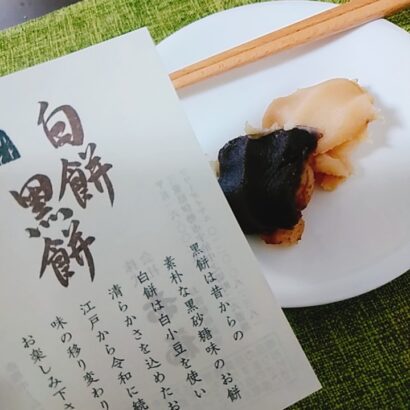 白餅
黒餅
黒餅は昔からの
素朴な黒砂糖味のお餅
白餅は白小豆を使い
清らかさを込めたお
江戸から令和に続
味の移り変わり
お楽しみ下さ